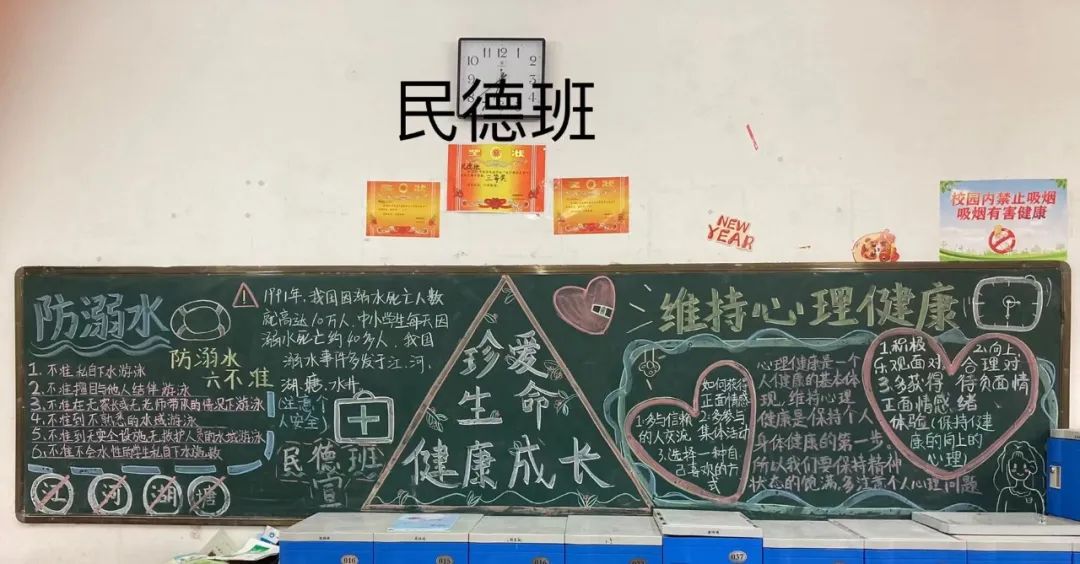 民德班
10 11 12 1 2
9
8 4
奖状
三等奖
NEW
YEAR
校园内禁止吸烟
吸烟有害健康
防溺水
防溺水
六不准
1.不准私自下水游泳
2.不准擅自与他人结伴游泳
3.不准在无家长或无老师带队的情况下游泳
4.不准到不熟悉的水域游泳
5.不准到无安全设施、无救护人员的水域游泳
6.不准不会水性的学生私自下水施救
江 河 湖 塘
1991年,我国因溺水死亡人数
就高达10万人,中小学生每天因
溺水死亡约40多人,我国
溺水事件多发于江、河、
湖、塘、水井
(注意个
人安全)
民德班
宣
珍爱
生命
健康成长
维持心理健康
如何获得
正面情感
1.多与信赖
的人交流
2.多参与
集体活动
3.选择一种自
己喜欢的方
式
心理健康是一个
人健康的基本体
现,维持心理
健康是保持个人
身体健康的第一步
所以我们要保持精神
状态的饱满,多注意个人心理问题
1.积极
乐观面对
2.向上
合理对
待负面情
绪
3.多获得
正面情感
体验(保持健
康的向上的
心理)
016
037